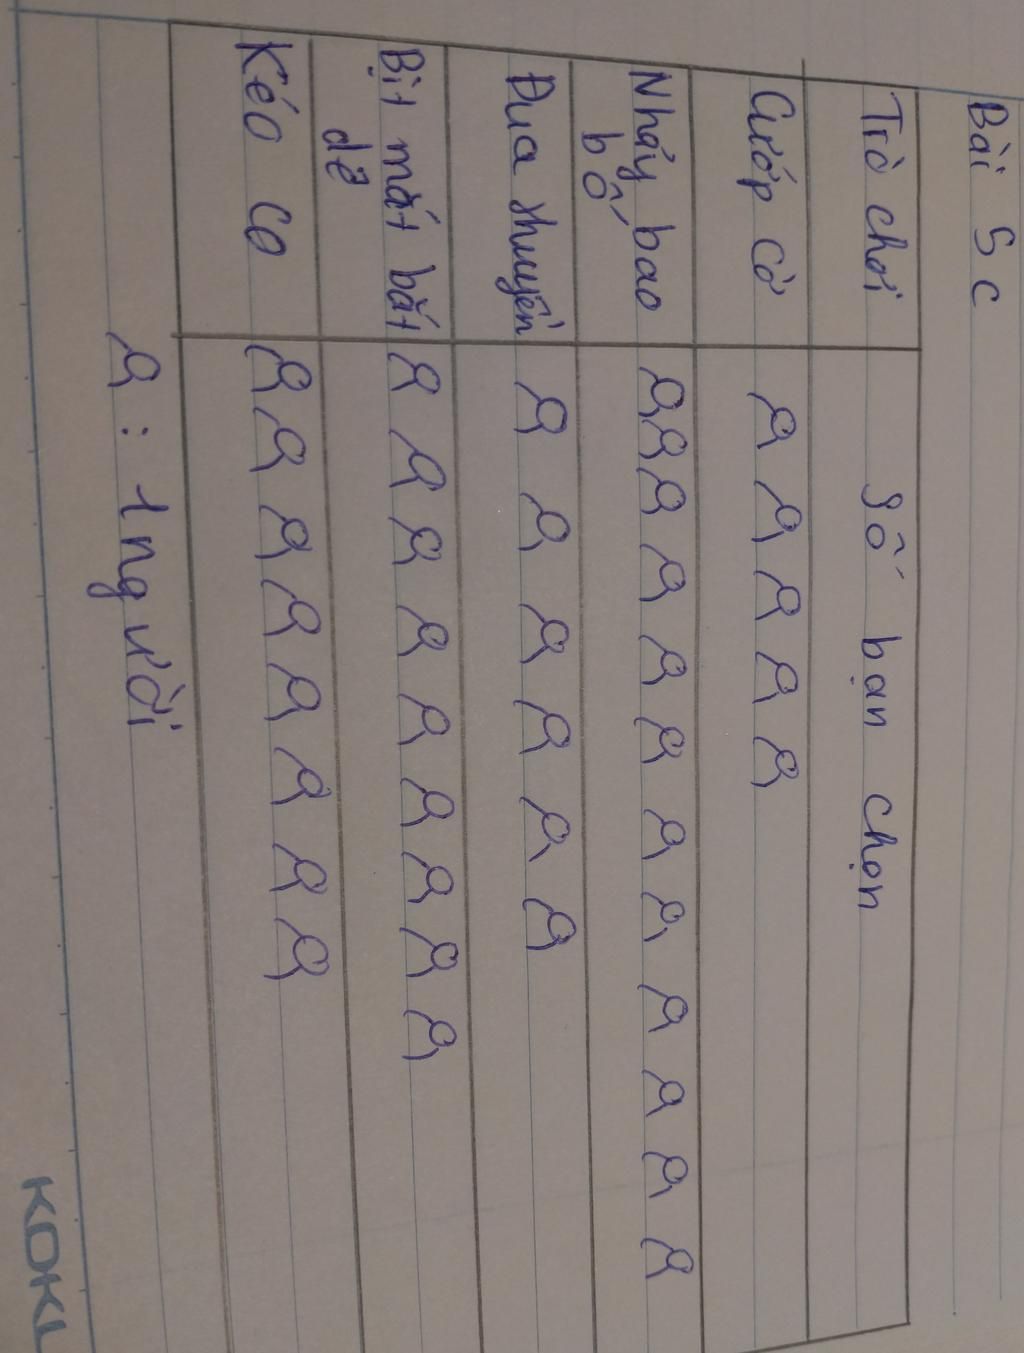 Bài 5c
Trò chơi Số bạn chọn
Cướp cờ
Nhảy bao
bố
Đua thuyền
Bịt mắt bắt
dê
Kéo co
: 1 người
KOKU